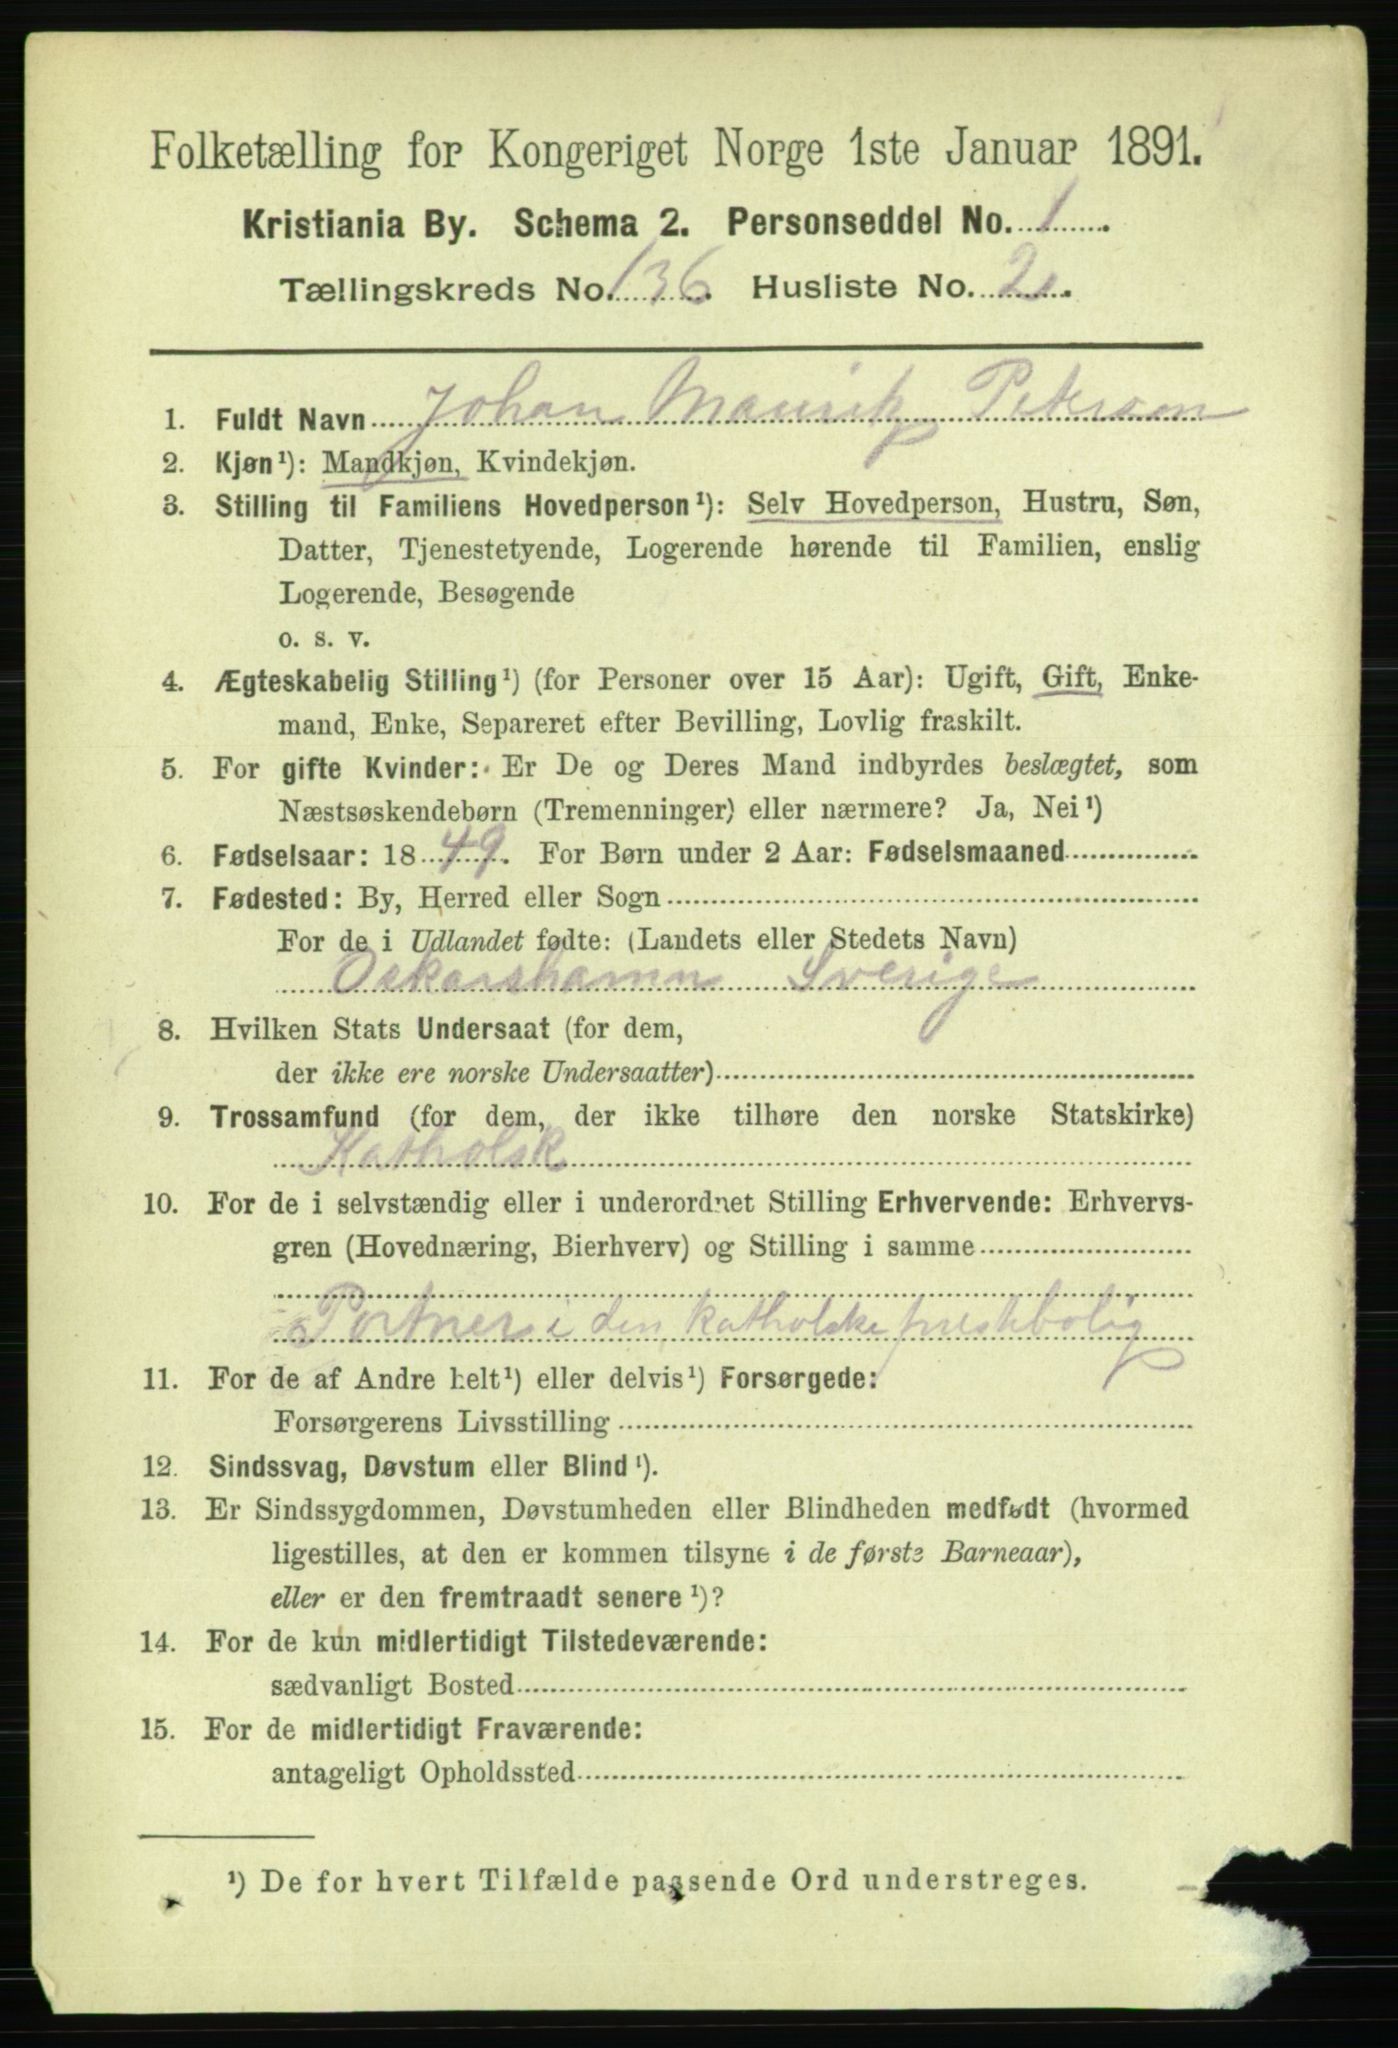 Folketælling for Kongeriget Norge 1ste Januar 1891.
Kristiania By. Schema 2. Personseddel No. 1.
Tællingskreds No. 136. Husliste No. 2.
1. Fuldt Navn Johan Peterson
2. Kjøn¹): Mandkjøn, Kvindekjøn.
3. Stilling til Familiens Hovedperson¹): Selv Hovedperson, Hustru, Søn,
Datter, Tjenestetyende, Logerende hørende til Familien, enslig
Logerende, Besøgende
o. s. v.
4. Ægteskabelig Stilling¹) (for Personer over 15 Aar): Ugift, Gift, Enke-
mand, Enke, Separeret efter Bevilling, Lovlig fraskilt.
5. For gifte Kvinder: Er De og Deres Mand indbyrdes beslægtet, som
Næstsøskendebørn (Tremenninger) eller nærmere? Ja, Nei¹)
6. Fødselsaar: 1849. For Børn under 2 Aar: Fødselsmaaned
7. Fødested: By, Herred eller Sogn
For de i Udlandet fødte: (Landets eller Stedets Navn)
Oskarshamn Sverige
8. Hvilken Stats Undersaat (for dem,
der ikke ere norske Undersaatter)
9. Trossamfund (for dem, der ikke tilhøre den norske Statskirke)
Katholsk
10. For de i selvstændig eller i underordnet Stilling Erhvervende: Erhvervs-
gren (Hovednæring, Bierhverv) og Stilling i samme
Portner i den katholske prestebolig
11. For de af Andre helt¹) eller delvis¹) Forsørgede:
Forsørgerens Livsstilling
12. Sindssvag, Døvstum eller Blind¹).
13. Er Sindssygdommen, Døvstumheden eller Blindheden medfødt (hvormed
ligestilles, at den er kommen tilsyne i de første Barneaar),
eller er den fremtraadt senere¹)?
14. For de kun midlertidigt Tilstedeværende:
sædvanligt Bosted
15. For de midlertidigt Fraværende:
antageligt Opholdssted
¹) De for hvert Tilfælde passende Ord understreges.